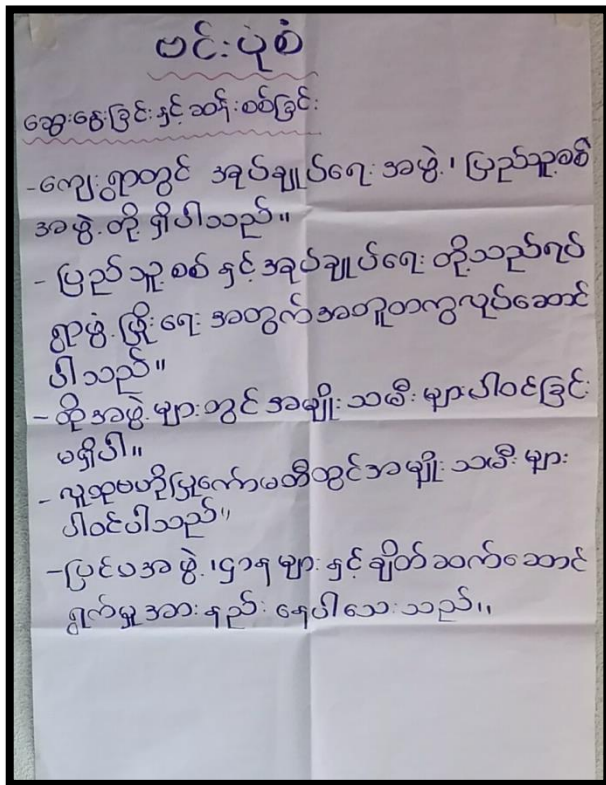 ဗင်းပုံစံ
ဆွေးနွေးခြင်းနှင့်ဆန်းစစ်ခြင်း
-ကျေးရွာတွင် အုပ်ချုပ်ရေးအဖွဲ့၊ ပြည်သူ့စစ်
အဖွဲ့တို့ရှိပါသည်။
- ပြည်သူ့စစ်နှင့်အုပ်ချုပ်ရေးတို့သည်ရပ်
ရွာဖွံ့ဖြိုးရေးအတွက်အတူတကွလုပ်ဆောင်
ပါသည်။
- ထိုအဖွဲ့များတွင်အမျိုးသမီးများပါဝင်ခြင်း
မရှိပါ။
- လူထုဗဟိုပြုကော်မတီတွင်အမျိုးသမီးများ
ပါဝင်ပါသည်။
-ပြင်ပအဖွဲ့၊ဌာနများနှင့်ချိတ်ဆက်ဆောင်
ရွက်မှုအားနည်းနေပါသေးသည်။